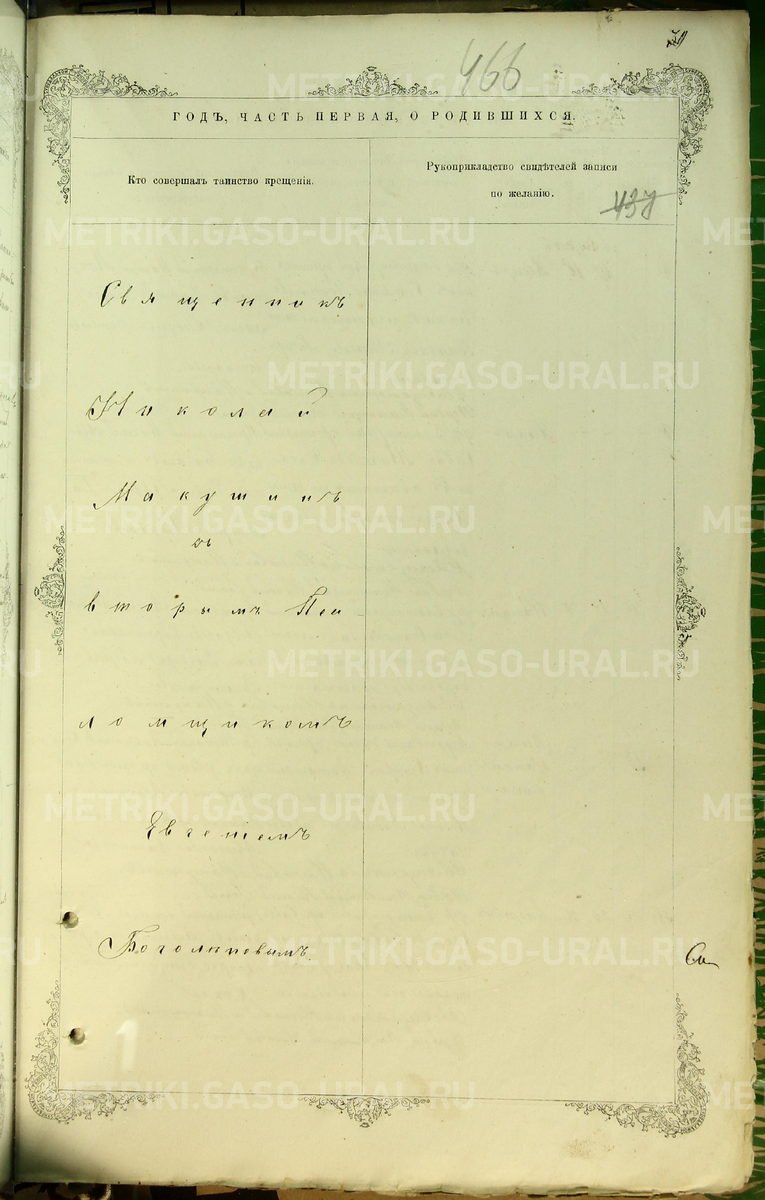 466
ГОДЪ, ЧАСТЬ ПЕРВАЯ, О РОДИВШИХСЯ.
Кто совершалъ таинство крещенія.
Рукоприкладство свидѣтелей записи
по желанію.
437
Священникъ
Николай
Макушинъ
съ
вторымъ Пса-
ломщикомъ
Евгеніемъ
Боголюповымъ.
METRIKI.GASO-URAL.RU
1